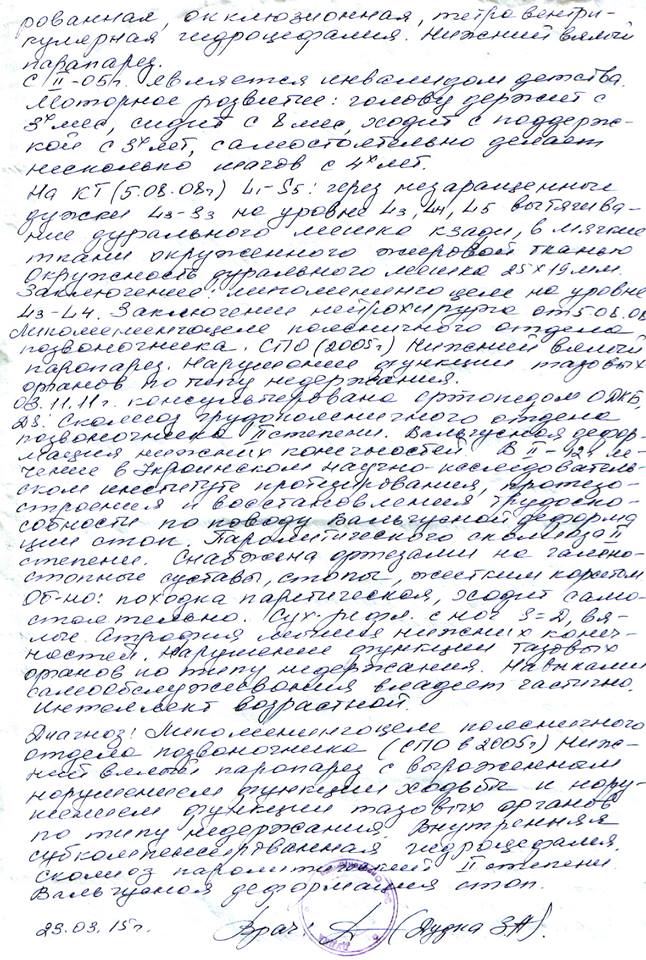 рованная, окклюзионная, тетравентри-
кулярная гидроцефалия. Нижний вялый
парапарез.
С II-05г. является инвалидом детства.
Моторное развитие: голову держит с
3х мес, сидит с 8 мес, ходит с поддерж-
кой с 3х лет, самостоятельно делает
несколько шагов с 4х лет.
На КТ (5.08.08г) L1-S5: через незаращенные
дужки L3-S3 на уровне L3, L4, L5 вытягива-
ние дурального мешка кзади, в мягкие
ткани окруженного жировой тканью
Окружность дурального мешка 25х19мм.
Заключение: липоменингоцеле на уровне
L3-L4. Заключение нейрохирурга от 5.08.08
Липоменингоцеле поясничного отдела
позвоночника. СПО (2005г) Нижний вялый
парапарез. Нарушение функции тазовых
органов по типу недержания.
03.11.11г. консультирована ортопедом ОДКБ,
DS: Сколиоз грудопоясничного отдела
позвоночника II степени. Вальгусная дефор-
мация нижних конечностей. В II-12г ле-
чение в Украинском научно-исследователь-
ском институте протезирования, протезо-
строения и восстановления трудоспо-
собности по поводу вальгусной деформа
ции стоп. Паралитического сколиоза II
степени. Снабжена ортезами на голено-
стопные суставы, стопы, жестким корсетом
Об-но: походка паретическая, ходит само-
стоятельно. Сух. рефл. с ног S=D, вя-
лые. Атрофия мышц нижних конеч-
ностей. Нарушение функции тазовых
органов по типу недержания. Навыками
самообслуживания владеет частично.
Интеллект возрастной.
Диагноз: Липоменингоцеле поясничного
отдела позвоночника (СПО в 2005г) Ниж-
ний вялый парапарез с выраженным
нарушением функции ходьбы и нару-
шением функции тазовых органов
по типу недержания. Внутренняя
субкомпенсированная гидроцефалия.
Сколиоз паралитический II степени
Вальгусная деформация стоп.
23.03.15г. Врач: (Дудка З.А).